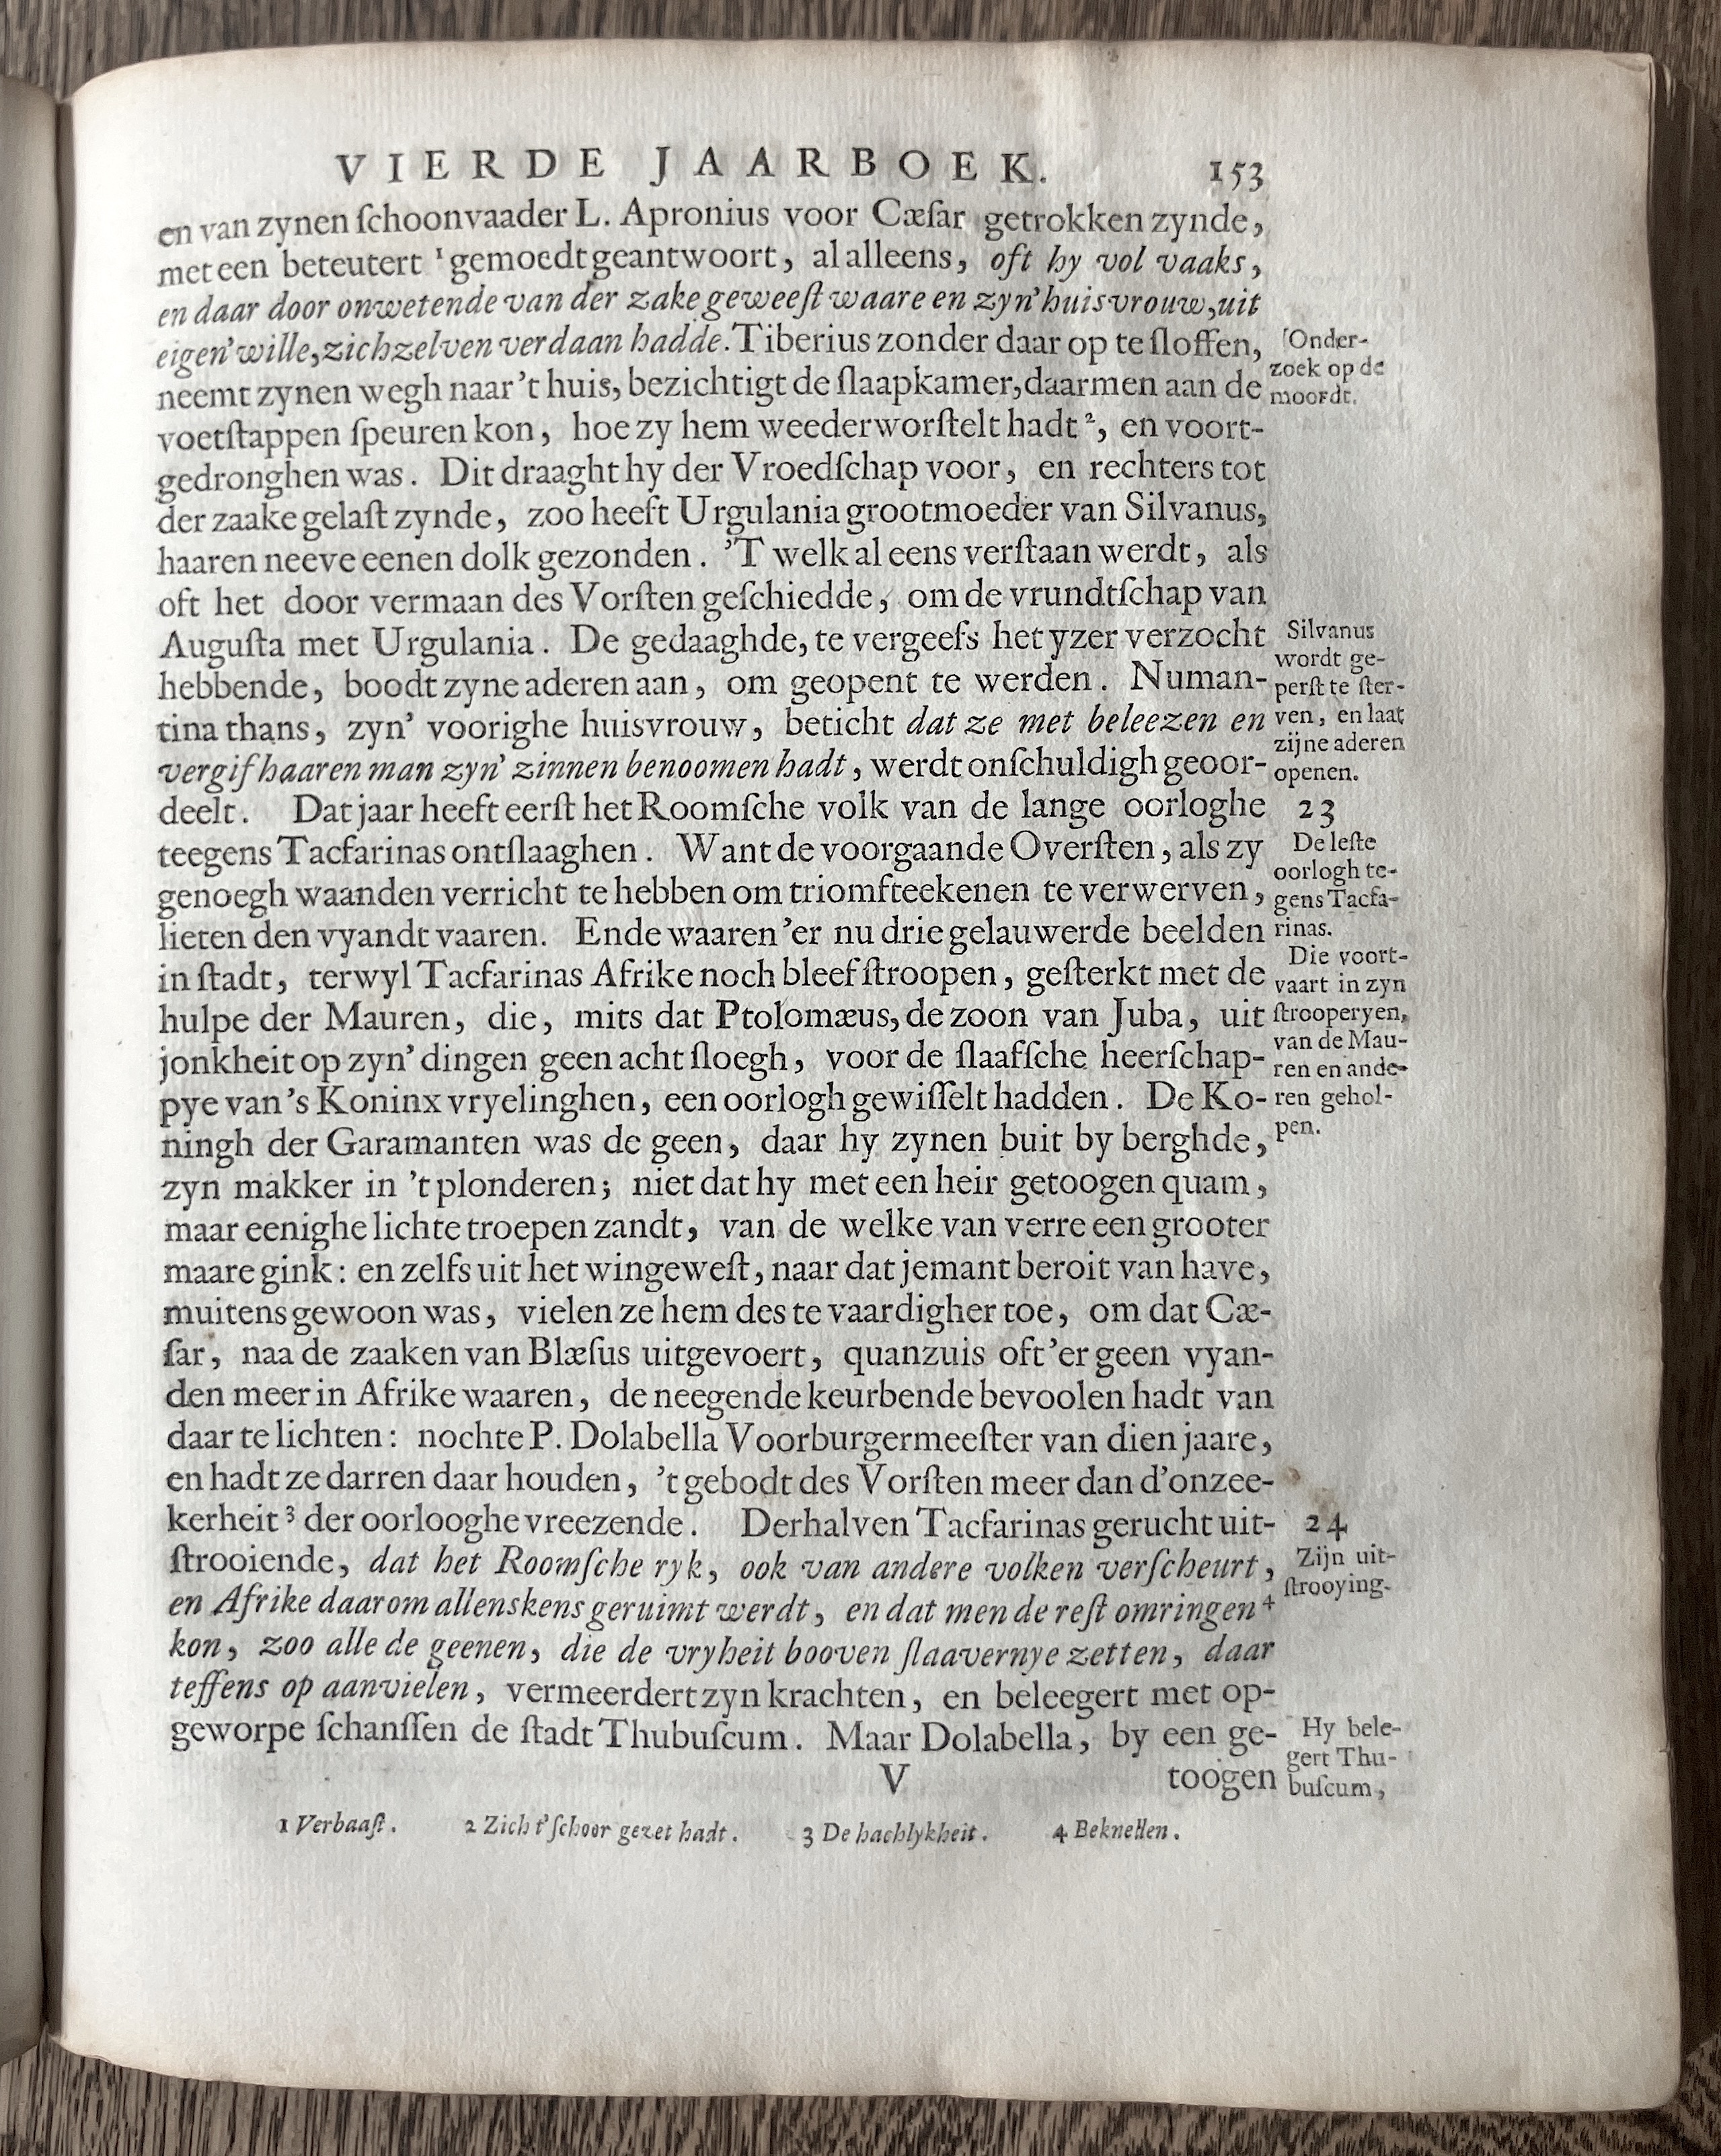 VIERDE JAARBOEK. 153
en van zynen ſchoonvaader L. Apronius voor Cæſar getrokken zynde,
met een beteutert ¹ gemoedt geantwoort, al alleens, oft hy vol vaaks,
en daar door onwetende van der zake geweeſt waare en zyn' huisvrouw, uit
eigen' wille, zich zelven verdaan hadde. Tiberius zonder daar op te ſloffen,
neemt zynen wegh naar 't huis, bezichtigt de ſlaapkamer, daarmen aan de
voetſtappen ſpeuren kon, hoe zy hem weederworſtelt hadt ², en voort-
gedronghen was. Dit draaght hy der Vroedſchap voor, en rechters tot
der zaake gelaſt zynde, zoo heeft Urgulania grootmoeder van Silvanus,
haaren neeve eenen dolk gezonden. 'T welk al eens verſtaan werdt, als
oft het door vermaan des Vorſten geſchiedde, om de vrundtſchap van
Auguſta met Urgulania. De gedaaghde, te vergeefs het yzer verzocht
hebbende, boodt zyne aderen aan, om geopent te werden. Numan-
tina thans, zyn' voorighe huisvrouw, beticht dat ze met beleezen en
vergif haaren man zyn' zinnen benoomen hadt, werdt onſchuldigh geoor-
deelt. Dat jaar heeft eerſt het Roomſche volk van de lange oorloghe
teegens Tacfarinas ontſlaaghen. Want de voorgaande Overſten, als zy
genoegh waanden verricht te hebben om triomfteekenen te verwerven,
lieten den vyandt vaaren. Ende waaren 'er nu drie gelauwerde beelden
in ſtadt, terwyl Tacfarinas Afrike noch bleef ſtroopen, geſterkt met de
hulpe der Mauren, die, mits dat Ptolomæus, de zoon van Juba, uit
jonkheit op zyn' dingen geen acht ſloegh, voor de ſlaafſche heerſchap-
pye van 's Koninx vryelinghen, een oorlogh gewiſſelt hadden. De Ko-
ningh der Garamanten was de geen, daar hy zynen buit by berghde,
zyn makker in 't plonderen; niet dat hy met een heir getoogen quam,
maar eenighe lichte troepen zandt, van de welke van verre een grooter
maare gink: en zelfs uit het wingeweſt, naar dat jemant beroit van have,
muitens gewoon was, vielen ze hem des te vaardigher toe, om dat Cæ-
ſar, naa de zaaken van Blæſus uitgevoert, quanzuis oft 'er geen vyan-
den meer in Afrike waaren, de neegende keurbende bevoolen hadt van
daar te lichten: nochte P. Dolabella Voorburgermeeſter van dien jaare,
en hadt ze darren daar houden, 't gebodt des Vorſten meer dan d'onzee-
kerheit ³ der oorlooghe vreezende. Derhalven Tacfarinas gerucht uit-
ſtrooiende, dat het Roomſche ryk, ook van andere volken verſcheurt,
en Afrike daarom allenskens geruimt werdt, en dat men de reſt omringen ⁴
kon, zoo alle de geenen, die de vryheit booven ſlaavernye zetten, daar
teffens op aanvielen, vermeerdert zyn krachten, en beleegert met op-
geworpe ſchanſſen de ſtadt Thubuſcum. Maar Dolabella, by een ge-
V toogen
Onder-
zoek op de
moordt.
Silvanus
wordt ge-
perſt te ſter-
ven, en laat
zijne aderen
openen.
23
De leſte
oorlogh te-
gens Tacfa-
rinas.
Die voort-
vaart in zyn
ſtrooperyen,
van de Mau-
ren en ande-
ren gehol-
pen.
24
Zijn uit-
ſtrooying.
Hy bele-
gert Thu-
buſcum,
1 Verbaaſt. 2 Zich t'ſchoor gezet hadt. 3 De hachlykheit. 4 Beknellen.